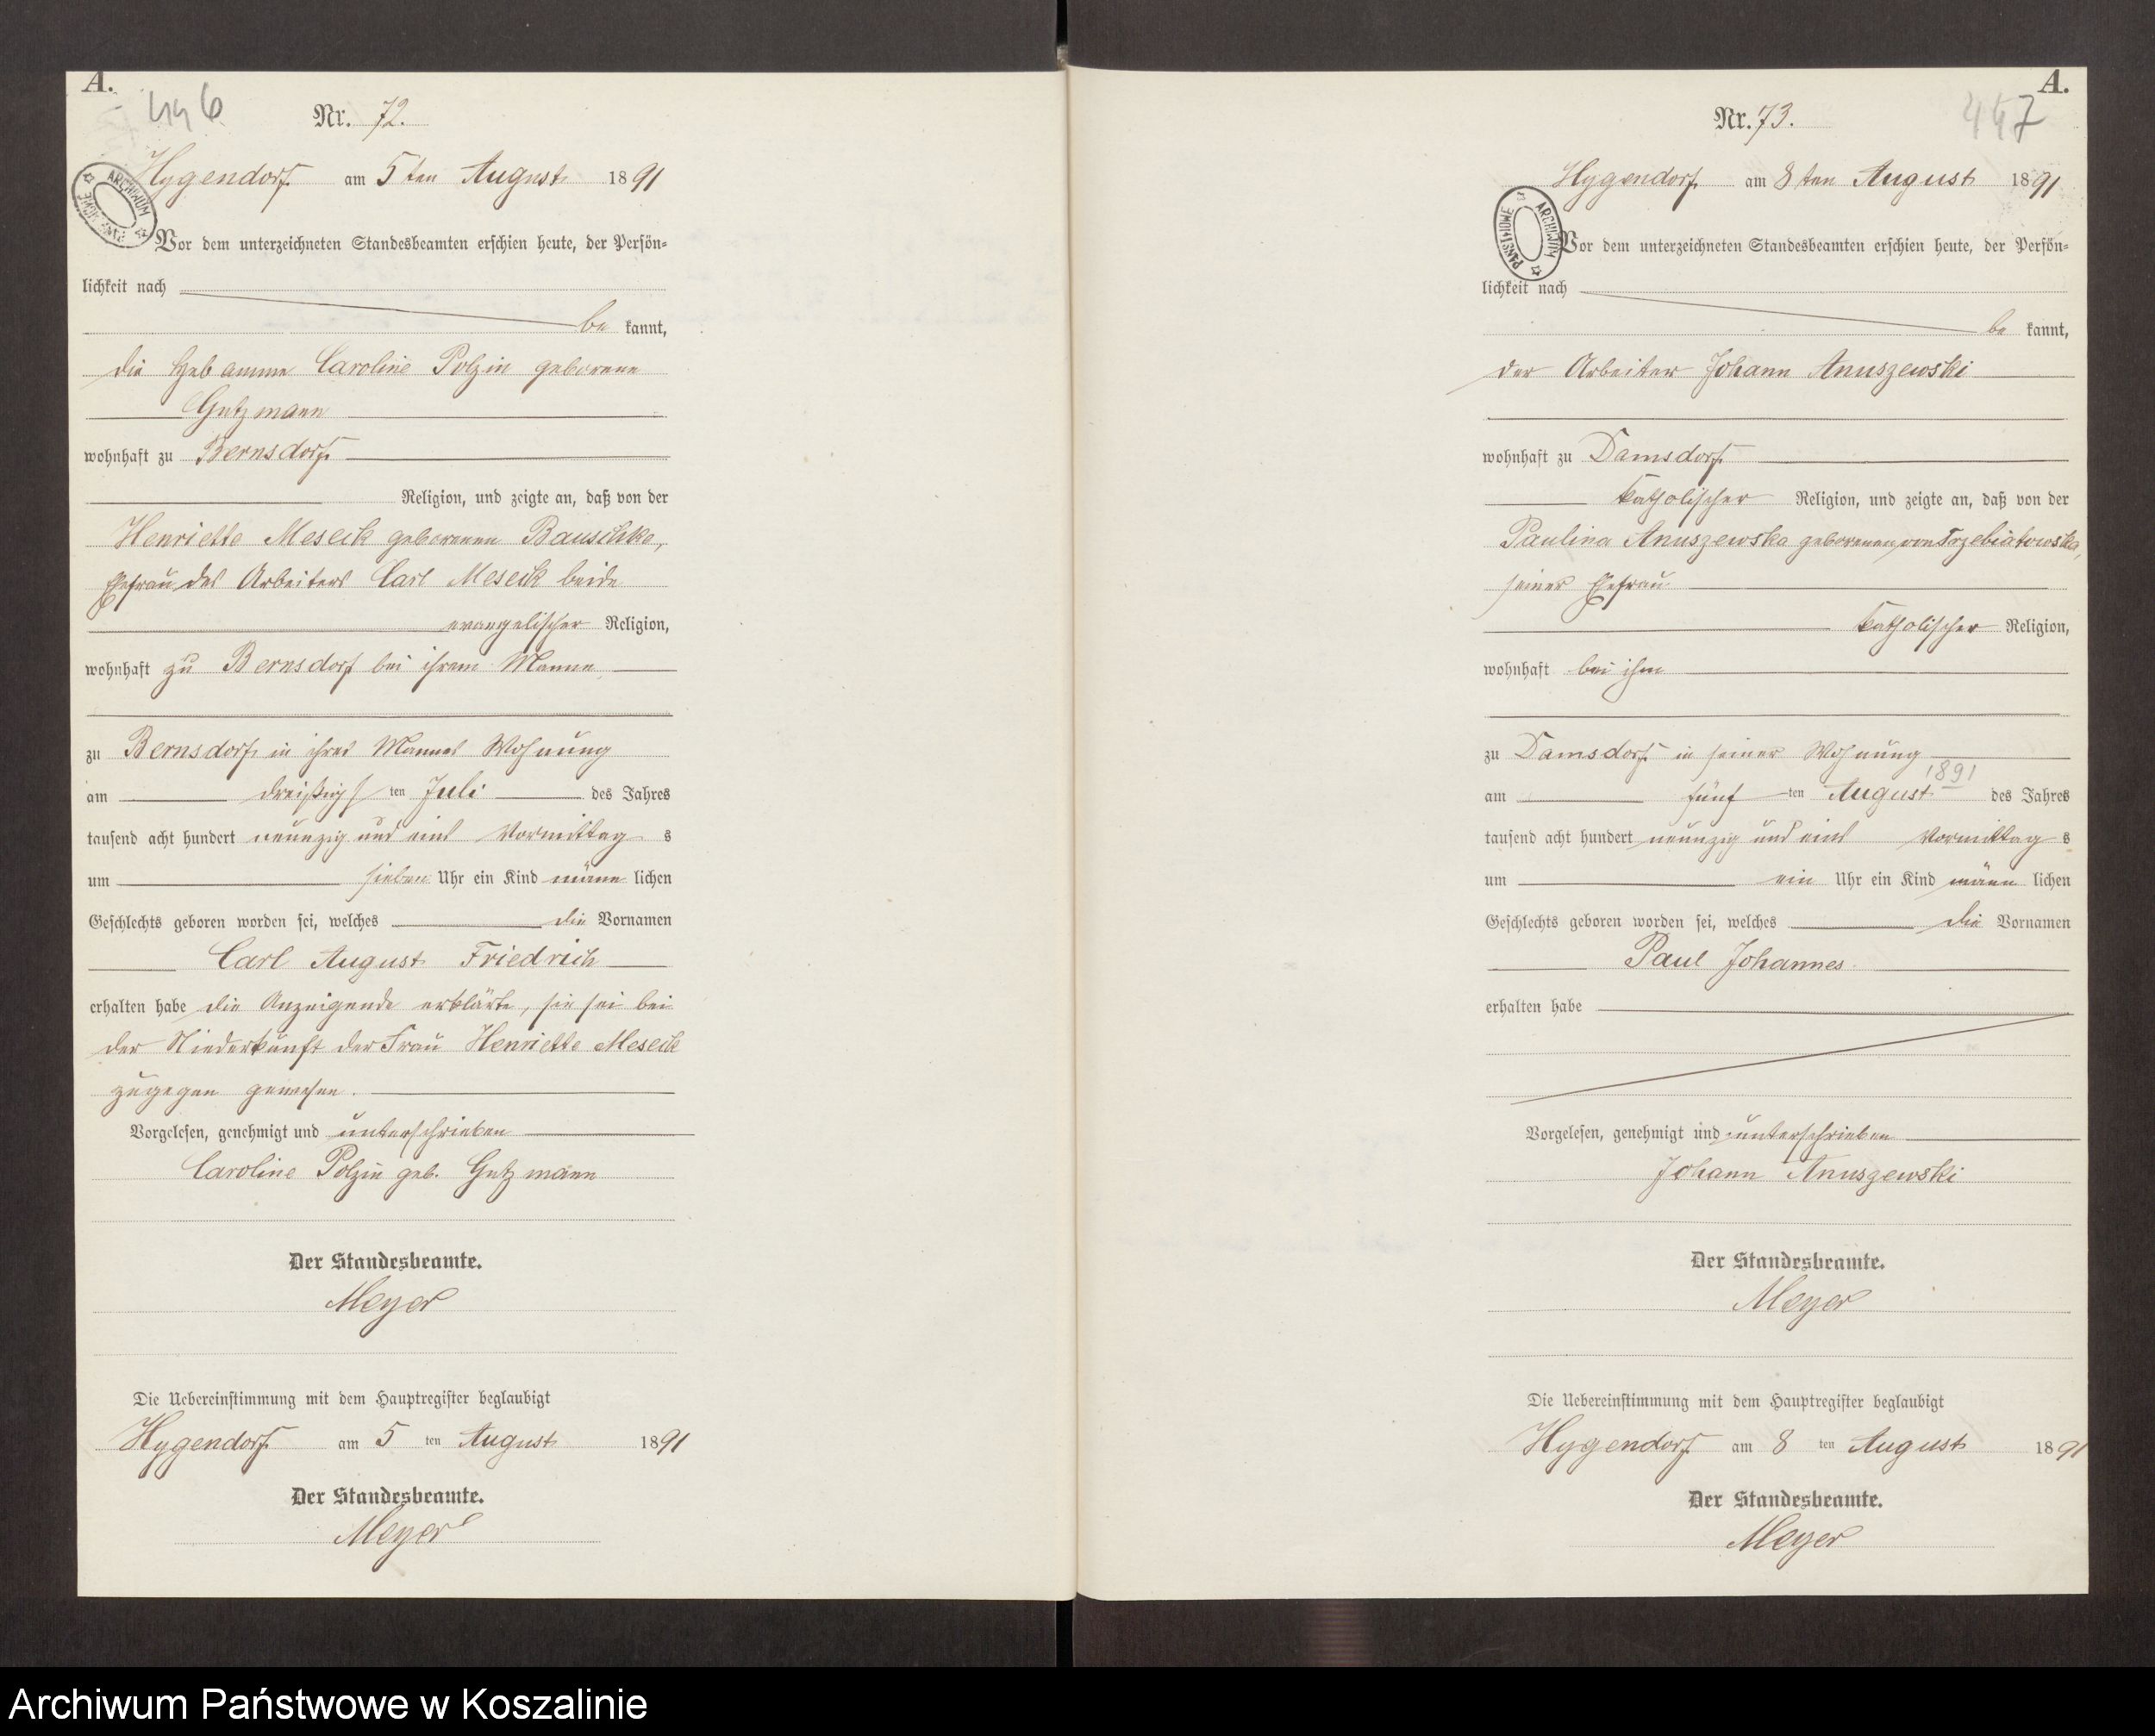 A.
446
Nr. 72.
Hygendorf am 5ten August 1891
Vor dem unterzeichneten Standesbeamten erschien heute, der Persön-
lichkeit nach
be kannt,
die Hebamme Caroline Polzin geborene
Gutzmann
wohnhaft zu Bernsdorf
Religion, und zeigte an, daß von der
Henriette Meseck geborenen Bauschke,
Ehefrau des Arbeiters Carl Meseck beide
evangelischer Religion,
wohnhaft zu Bernsdorf bei ihrem Manne
zu Bernsdorf in ihres Mannes Wohnung
am dreißigsten Juli des Jahres
tausend acht hundert neunzig und eins Vormittags
um sieben Uhr ein Kind männlichen
Geschlechts geboren worden sei, welches die Vornamen
Carl August Friedrich
erhalten habe die Anzeigende erklärte, sie sei bei
der Niederkunft der Frau Henriette Meseck
zugegen gewesen.
Vorgelesen, genehmigt und unterschrieben
Caroline Polzin geb. Gutzmann
Der Standesbeamte.
Meyer
Die Uebereinstimmung mit dem Hauptregister beglaubigt
Hygendorf am 5 ten August 1891
Der Standesbeamte.
Meyer
A.
447
Nr. 73.
Hygendorf am 8ten August 1891
ARCHIWUM PAŃSTWOWE
Vor dem unterzeichneten Standesbeamten erschien heute, der Persön-
lichkeit nach
be kannt,
der Arbeiter Johann Anuszewski
wohnhaft zu Damsdorf
katholischer Religion, und zeigte an, daß von der
Paulina Anuszewska geborenen von Trzebiatowska,
seiner Ehefrau
katholischer Religion,
wohnhaft bei ihm
zu Damsdorf in seiner Wohnung
1891
am fünf ten August des Jahres
tausend acht hundert neunzig und eins Vormittags
um ein Uhr ein Kind männlichen
Geschlechts geboren worden sei, welches die Vornamen
Paul Johannes
erhalten habe
Vorgelesen, genehmigt und unterschrieben
Johann Anuszewski
Der Standesbeamte.
Meyer
Die Uebereinstimmung mit dem Hauptregister beglaubigt
Hygendorf am 8 ten August 1891
Der Standesbeamte.
Meyer
Archiwum Państwowe w Koszalinie